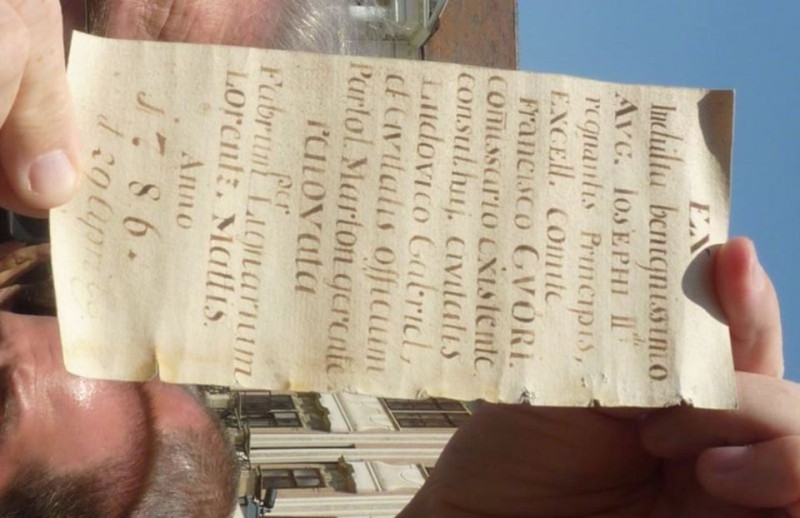 EX
Indultu benignissimo
AVG. IOSEPHI II
regnantis Principis,
EXCELL. Comite
Francisco GVŐRI.
Com̄issario existente
Consul. huj. Civitatis
Ludovico Gabriel,
et Civitatis officium
Parlol. Marton gerente
renovata
per
Fabrum Lignarium
Lorenz. Mattis.
Anno
1786.
d 20 Apr